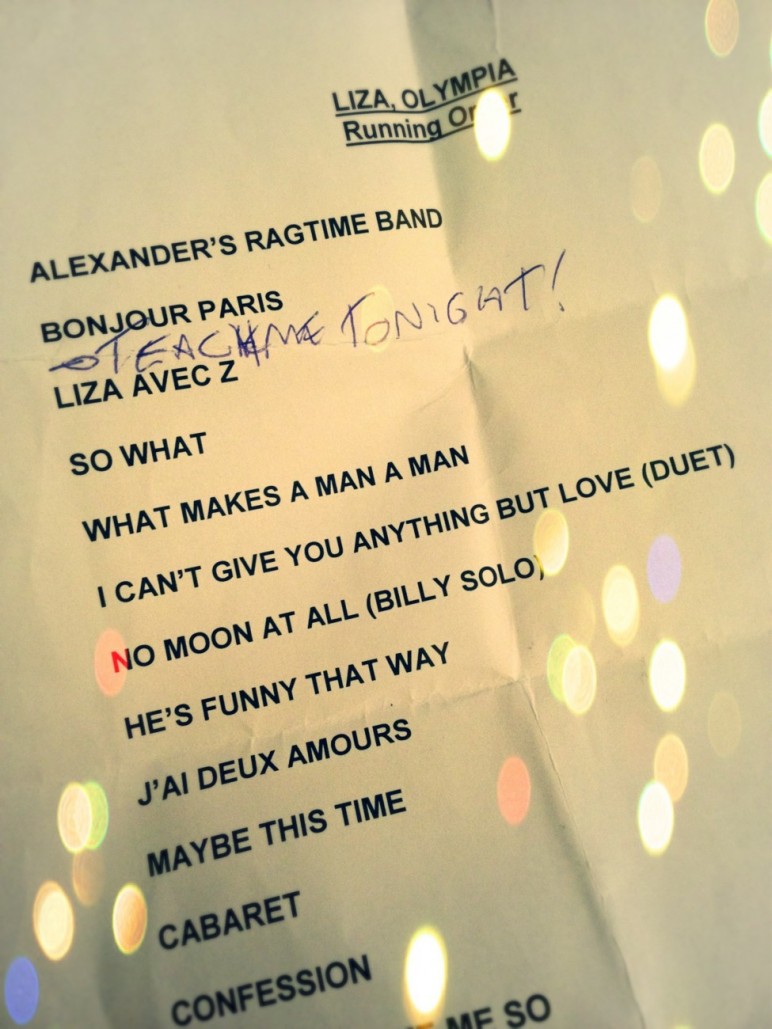 LIZA, OLYMPIA
Running Order
ALEXANDER'S RAGTIME BAND
BONJOUR PARIS
TEACH ME TONIGHT!
LIZA AVEC Z
SO WHAT
WHAT MAKES A MAN A MAN
I CAN'T GIVE YOU ANYTHING BUT LOVE (DUET)
NO MOON AT ALL (BILLY SOLO)
HE'S FUNNY THAT WAY
J'AI DEUX AMOURS
MAYBE THIS TIME
CABARET
CONFESSION
ME SO